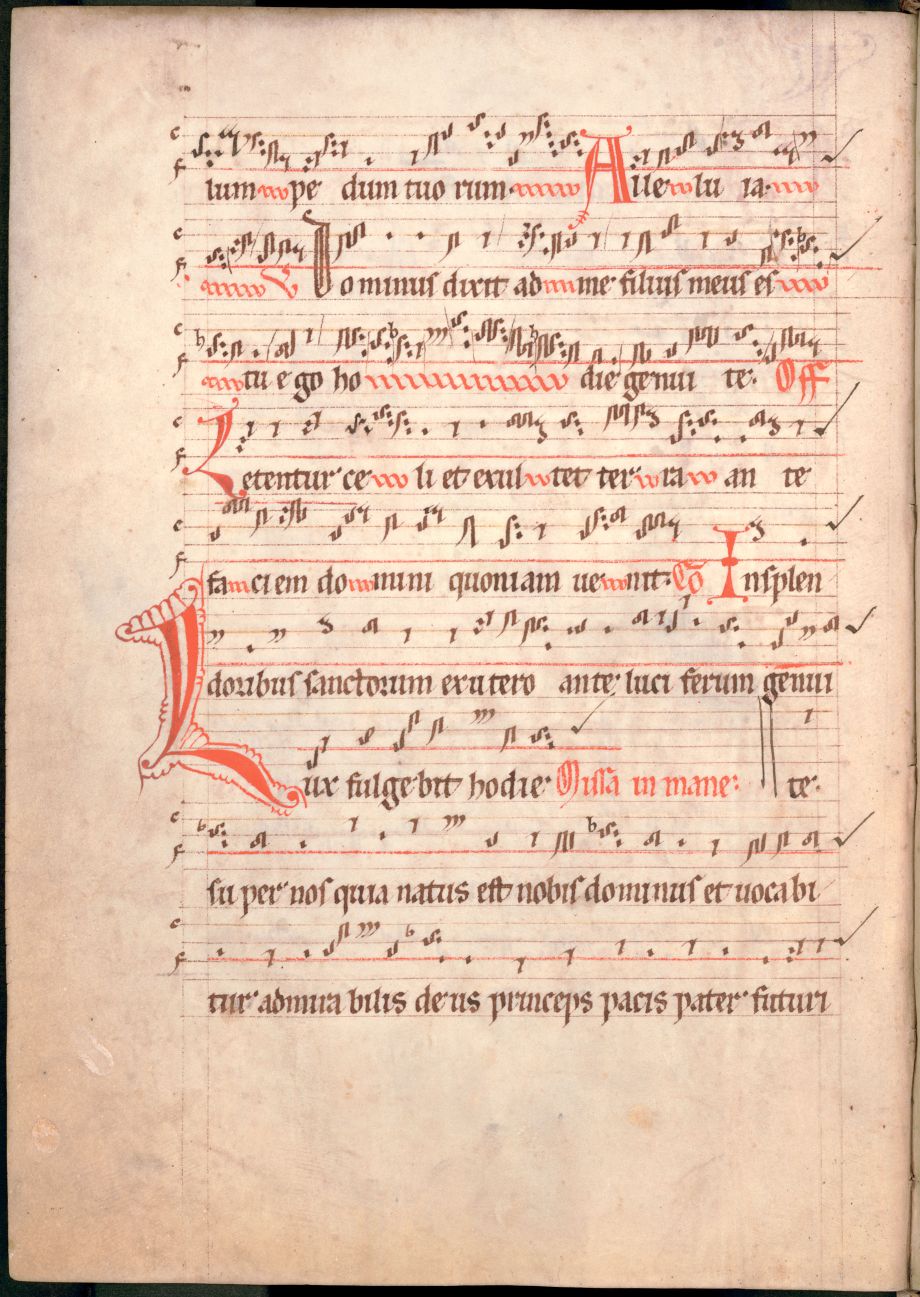 lum pe dum tuo rum Alle lu ia
V Dominus dixit ad me filius meus es
tu e go ho die genui te. Off
Letentur ce li et exul tet ter ra an te
faciem do mini quoniam ue nit. Co In splen
doribus sanctorum ex utero ante luci ferum genui
Lux fulgebit hodie Missa in mane: te.
su per nos quia natus est nobis dominus et uocabi
tur admira bilis deus princeps pacis pater futuri